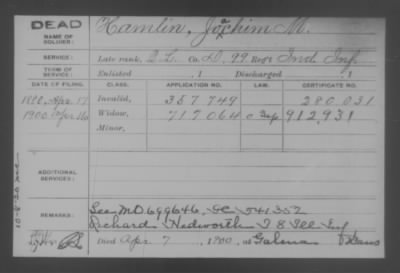 DEAD
NAME OF SOLDIER:
Hamlin, Jochim M.
SERVICE:
Late rank, 2 L. Co. D, 99 Reg't Ind Inf.
TERM OF SERVICE:
Enlisted , 1 Discharged , 1
DATE OF FILING. CLASS. APPLICATION NO. LAW. CERTIFICATE NO.
1880, Apr. 17 Invalid, 357 749 280,031
1900 Apr 16 Widow, 717 064 912,931
Minor,
ADDITIONAL SERVICES:
REMARKS:
See MO 699646, 541352
Richard Hedworth I 8 Ill Inf
Died Apr 7, 1900, at Galena Kans